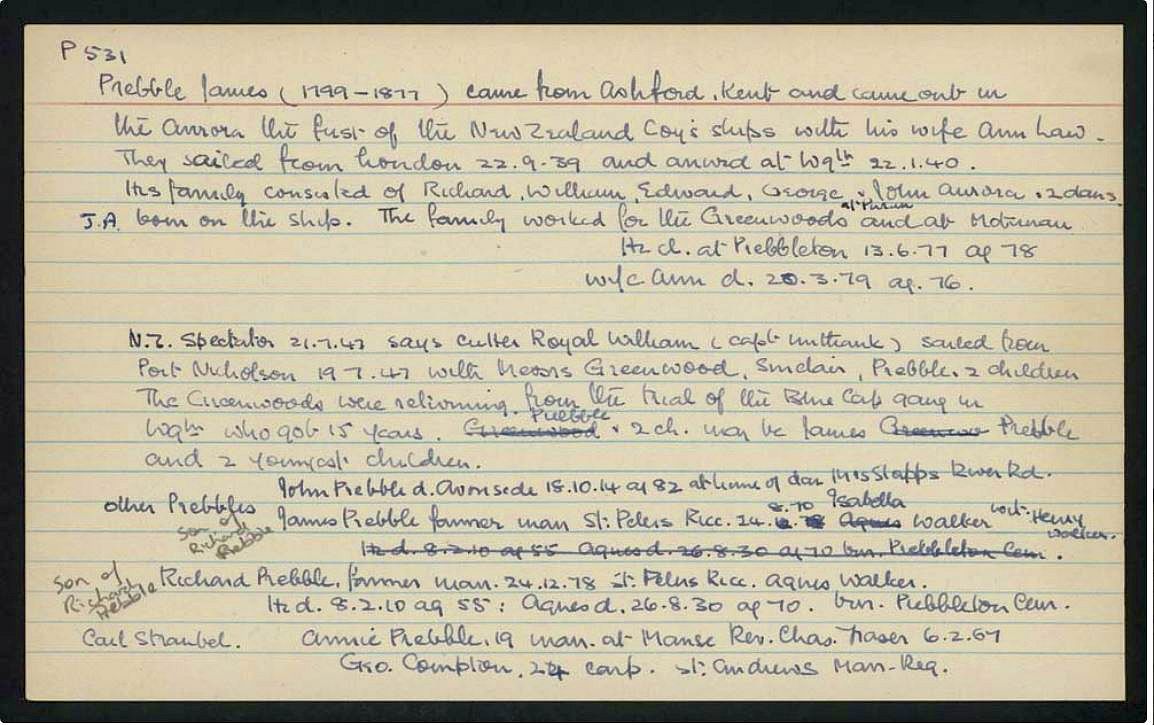 P 531
Prebble James (1799-1877) came from Ashford, Kent and came out in
the Aurora the first of the New Zealand Coy's ships with his wife Ann Law.
They sailed from London 22.9.39 and arrived at Wgth 22.1.40.
His family consisted of Richard, William, Edward, George, & John Aurora & 2 daus.
J.A. born on the ship. The family worked for the Greenwoods at Purau and at Motunau
He d. at Prebbleton 13.6.77 ag 78
wife Ann d. 20.3.79 ag. 76.
N.Z. Spectator 21.7.47 says cutter Royal William (capt Unthank) sailed from
Port Nicholson 19 7.47 with Messrs Greenwood, Sinclair, Prebble. 2 children
The Greenwoods were returning from the trial of the Blue Cap gang in
Wgtn who got 15 years. Greenwood Prebble & 2 ch. may be James Greenwoo Prebble
and 2 youngest children.
John Prebble d. Avonside 18.10.14 ag 82 at home of dau Mrs Stapps River Rd.
other Prebbles James Prebble farmer marr St. Peters Ricc. 24. 8.70 Agnes Isabella Walker wit: Henry Walker.
son of Richard Prebble
He d. 8.2.10 ag 55 Agnes d. 26.8.30 ag 70 bur. Prebbleton Cem.
son of Richard Prebble Richard Prebble, farmer marr. 24.12.78 St. Peters Ricc. Agnes Walker.
He d. 8.2.10 ag 55: Agnes d. 26.8.30 ag 70. bur. Prebbleton Cem.
Carl Straubel. Annie Prebble, 19 marr. at Manse Rev. Chas. Fraser 6.2.67
Geo. Compton, 24 carp. St. Andrews Marr-Reg.